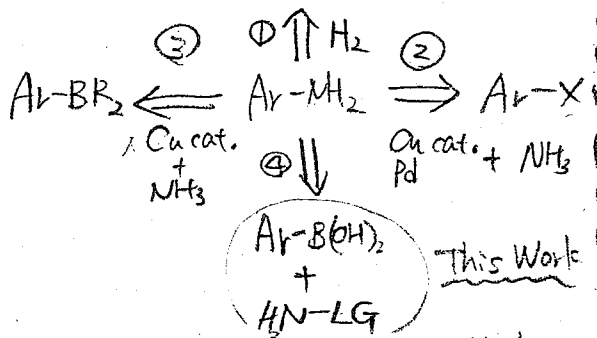 ③ ① ⇑ H₂ ②
Ar-BR₂ ⇐ Ar-NH₂ ⇒ Ar-X
Cu cat. + NH₃
④ ⇓
Cu cat. Pd + NH₃
Ar-B(OH)₂
+
H₂N-LG
This Work